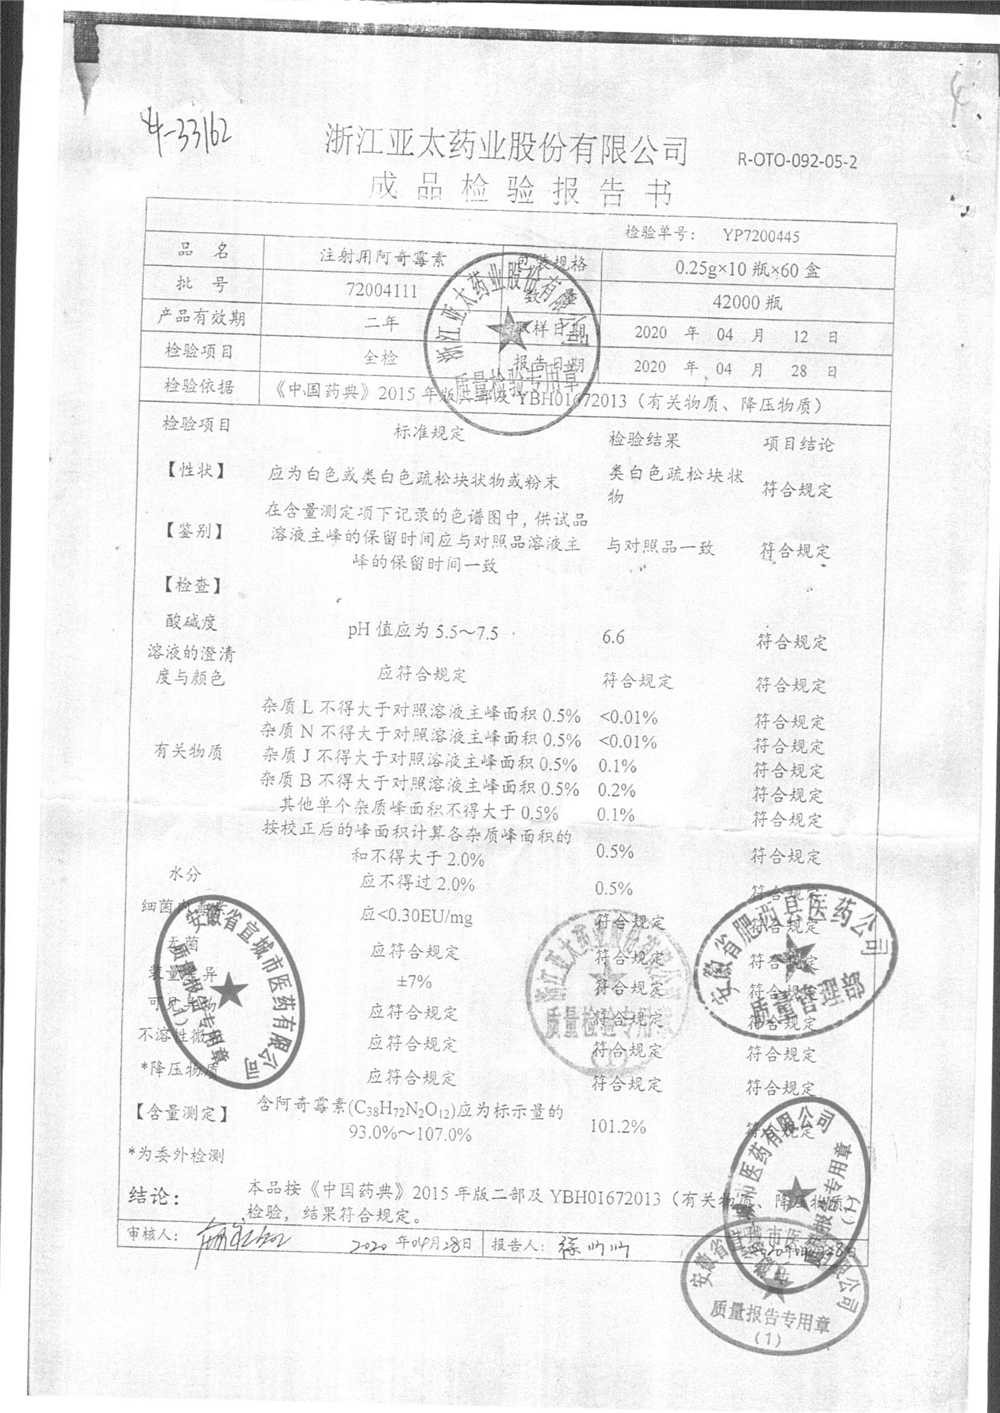 4-33162
4
浙江亚太药业股份有限公司
R-OTO-092-05-2
成品检验报告书
检验单号： YP7200445
品 名 注射用阿奇霉素 包装规格 0.25g×10 瓶×60 盒
批 号 72004111 数 量 42000 瓶
产品有效期 二年 取样日期 2020 年 04 月 12 日
检验项目 全检 报告日期 2020 年 04 月 28 日
检验依据 《中国药典》2015 年版二部及 YBH01672013（有关物质、降压物质）
检验项目 标准规定 检验结果 项目结论
【性状】 应为白色或类白色疏松块状物或粉末 类白色疏松块状物 符合规定
【鉴别】 在含量测定项下记录的色谱图中，供试品
溶液主峰的保留时间应与对照品溶液主 与对照品一致 符合规定
峰的保留时间一致
【检查】
酸碱度 pH 值应为 5.5～7.5 6.6 符合规定
溶液的澄清
度与颜色 应符合规定 符合规定 符合规定
杂质 L 不得大于对照溶液主峰面积 0.5% <0.01% 符合规定
杂质 N 不得大于对照溶液主峰面积 0.5% <0.01% 符合规定
有关物质 杂质 J 不得大于对照溶液主峰面积 0.5% 0.1% 符合规定
杂质 B 不得大于对照溶液主峰面积 0.5% 0.2% 符合规定
其他单个杂质峰面积不得大于 0.5% 0.1% 符合规定
按校正后的峰面积计算各杂质峰面积的
和不得大于 2.0% 0.5% 符合规定
水分 应不得过 2.0% 0.5% 符合规定
细菌内毒素 应<0.30EU/mg 符合规定 符合规定
无菌 应符合规定 符合规定 符合规定
装量差异 ±7% 符合规定 符合规定
可见异物 应符合规定 符合规定 符合规定
不溶性微粒 应符合规定 符合规定 符合规定
*降压物质 应符合规定 符合规定 符合规定
【含量测定】 含阿奇霉素(C38H72N2O12)应为标示量的
93.0%～107.0% 101.2% 符合规定
*为委外检测
结论： 本品按《中国药典》2015 年版二部及 YBH01672013（有关物质、降压物质）
检验，结果符合规定。
审核人： 2020 年04月28日 报告人：
浙江亚太药业股份有限公司
质量检验专用章
安徽省宣城市医药有限公司
质量报告专用章
(1)
浙江亚太药业股份有限公司
质量检验专用章
安徽省肥西县医药公司
质量管理部
市医药有限公司
质量报告专用章
(1)
安徽省宣城市医药有限公司
质量报告专用章
(1)